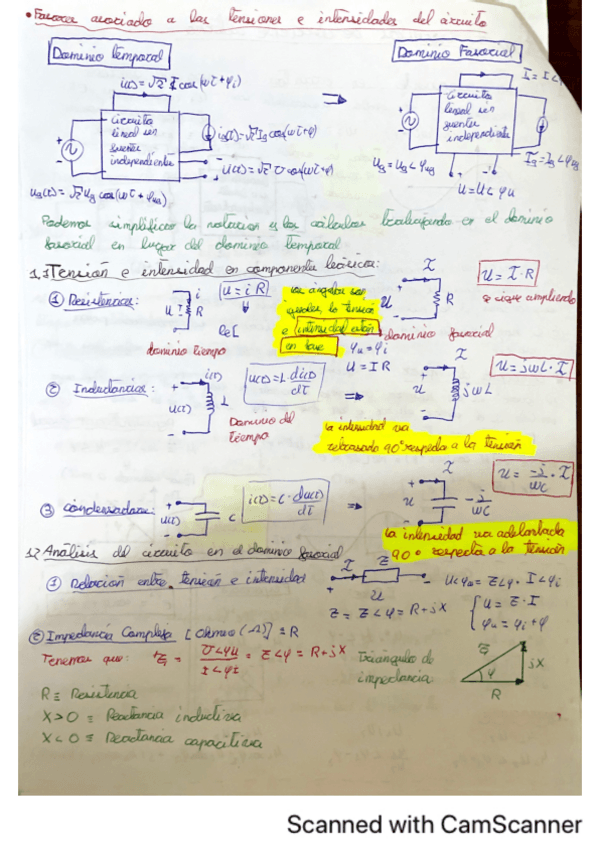 • Fasores asociado a las tensiones e intensidades del circuito
Dominio temporal
Dominio Fasorial
i(t) = √2 I cos(wt + φi)
⇒
circuito lineal sin fuentes independiente
ig(t) = √2 Ig cos(wt + φ)
u(t) = √2 U cos(wt + φ)
ug(t) = √2 Ug cos(wt + φug)
circuito lineal sin fuentes independiente
Ug = Ug < φug
U = U < φu
Podemos simplificar la notacion e los cálculos trabajando en el dominio
fasorial en lugar del dominio temporal
1.1 Tensión e intensidad en componentes teóricos:
① Resistencias:
+
-
u
i
R
u = i R
Re[
dominio tiempo
los angulos son
iguales, la tensión
e intensidad están
en fase
φu = φi
U = I R
dominio fasorial
+
-
I
U
R
U = I · R
se sigue cumpliendo
② Inductancias:
+
-
i(t)
u(t)
L
Dominio del
tiempo
u(t) = L di(t)/dt
⇒
+
-
I
U
jwL
U = jwL · I
la intensidad va
retrasada 90° respecto a la tensión
③ Condensadores:
+
-
u(t)
c
i(t) = C · du(t)/dt
⇒
+
-
I
U
-j/wC
U = -j/wC · I
la intensidad va adelantada
90° respecto a la tensión
1.2 Análisis del circuito en el dominio fasorial
① Relacion entre tensión e intensidad
+
I
Z
-
U
U<φu = Z<φ · I<φi
Z = Z<φ = R + jX
{ U = Z · I
φu = φi + φ
② Impedancia Compleja [Ohmio (Ω)] = R
Tenemos que: Z = U<φu / I<φi = Z<φ = R + jX
Triángulo de
impedancia
Z
jX
φ
R
R ≡ Resistencia
X > 0 ≡ Reactancia inductiva
X < 0 ≡ Reactancia capacitiva
Scanned with CamScanner